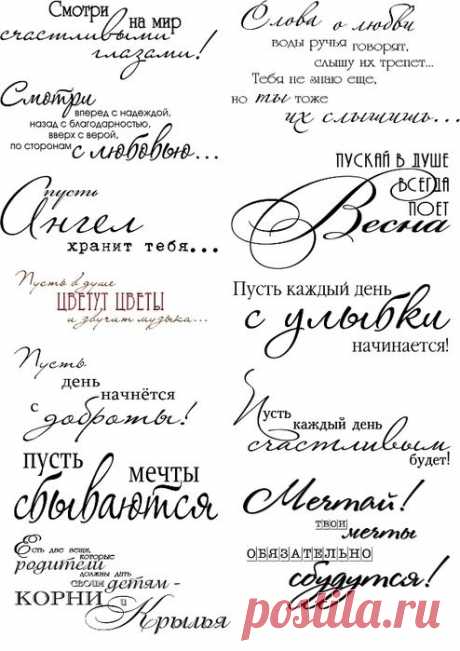 Смотри
на мир
счастливыми
глазами!
Слова о любви
воды ручья говорят,
слышу их трепет...
Тебя не знаю еще,
но ты тоже
их слышишь...
Смотри
вперед с надеждой,
назад с благодарностью,
вверх с верой,
по сторонам
с любовью...
пусть
Ангел
хранит тебя...
ПУСКАЙ В ДУШЕ
ВСЕГДА
ПОЕТ
Весна
Пусть в душе
ЦВЕТУТ ЦВЕТЫ
и звучит музыка...
Пусть каждый день
с улыбки
начинается!
Пусть
день
начнётся
с
доброты!
Пусть
каждый день
счастливым
будет!
пусть
мечты
сбываются
Мечтай!
твои
мечты
ОБЯЗАТЕЛЬНО
сбудутся!
Есть две вещи,
которые
родители
должны дать
своим детям -
КОРНИ и
Крылья
postila.ru